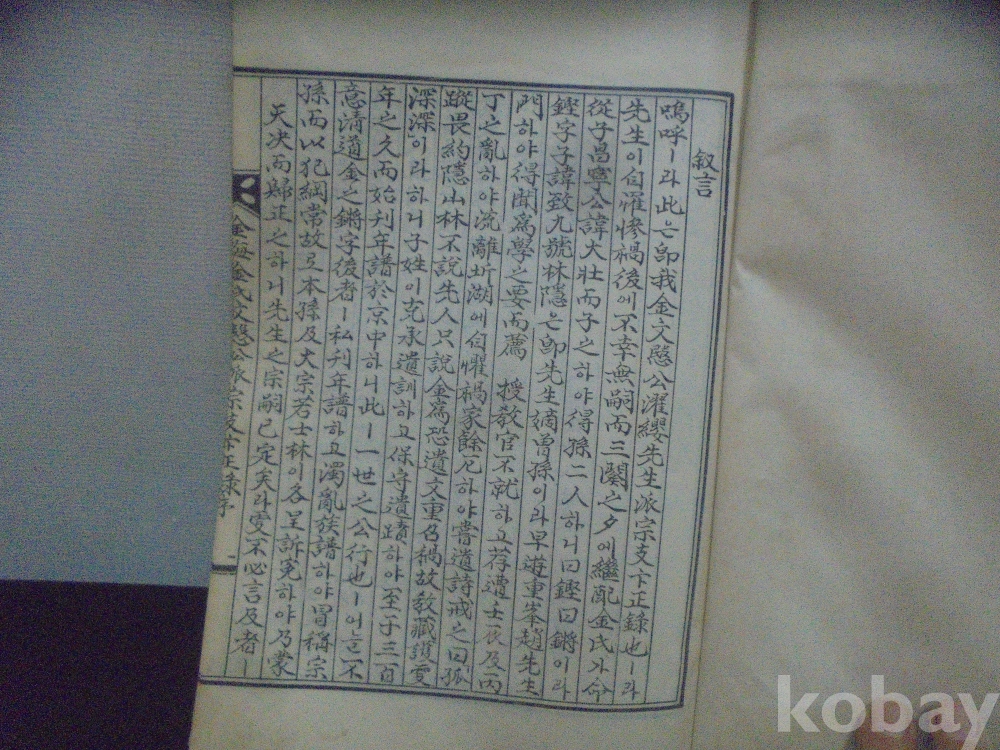 叙言
嗚呼ㅣ라此은卽我金文愍公濯纓先生派宗支卞正錄也ㅣ라
先生이自罹慘禍後에不幸無嗣而三闋之夕에繼配金氏가命
從子昌寧公諱大壯而子之하야得孫二人하니曰鏗曰鏘이라
鏗字子諱致九號林隱은卽先生嫡曾孫이라早遊重峯趙先生
門하야得聞爲學之要而薦 授敎官不就하고荐遭壬辰及丙
丁之亂하야流離圻湖에自懼禍家餘 하야嘗遺詩戒之曰孤
蹤畏約隱山林不說先人只說金爲恐遺文重召禍故敎藏護愛
深深이라하니子姓이克承遺訓하고保守遺蹟하야至于三百
年之久而始刊年譜於京中하니此ㅣ一世之公行也ㅣ어늘不
意淸道金之鏘字後者ㅣ私刊年譜하고濁亂族譜하야冒稱宗
孫而以犯綱常故로本孫及大宗若士林이各呈訴寃하야乃蒙
天决而歸正之하니先生之宗嗣已定矣라更不必言及者ㅣ
金海金氏文愍公派宗支卞正錄序 一
kobay